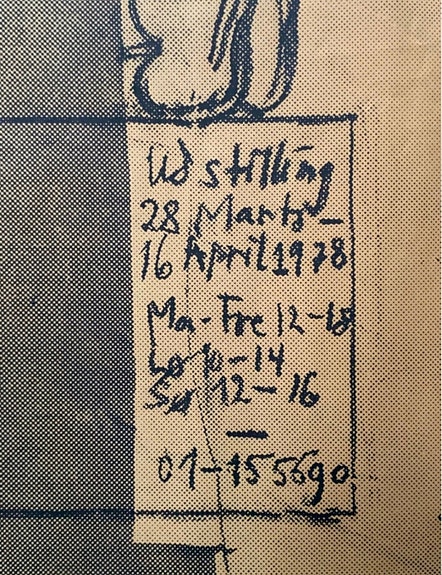 Udstilling
28 Marts –
16 April 1978
Ma - Fre 12 – 18
Lø 10 – 14
Sø 12 – 16
—
01 – 155690